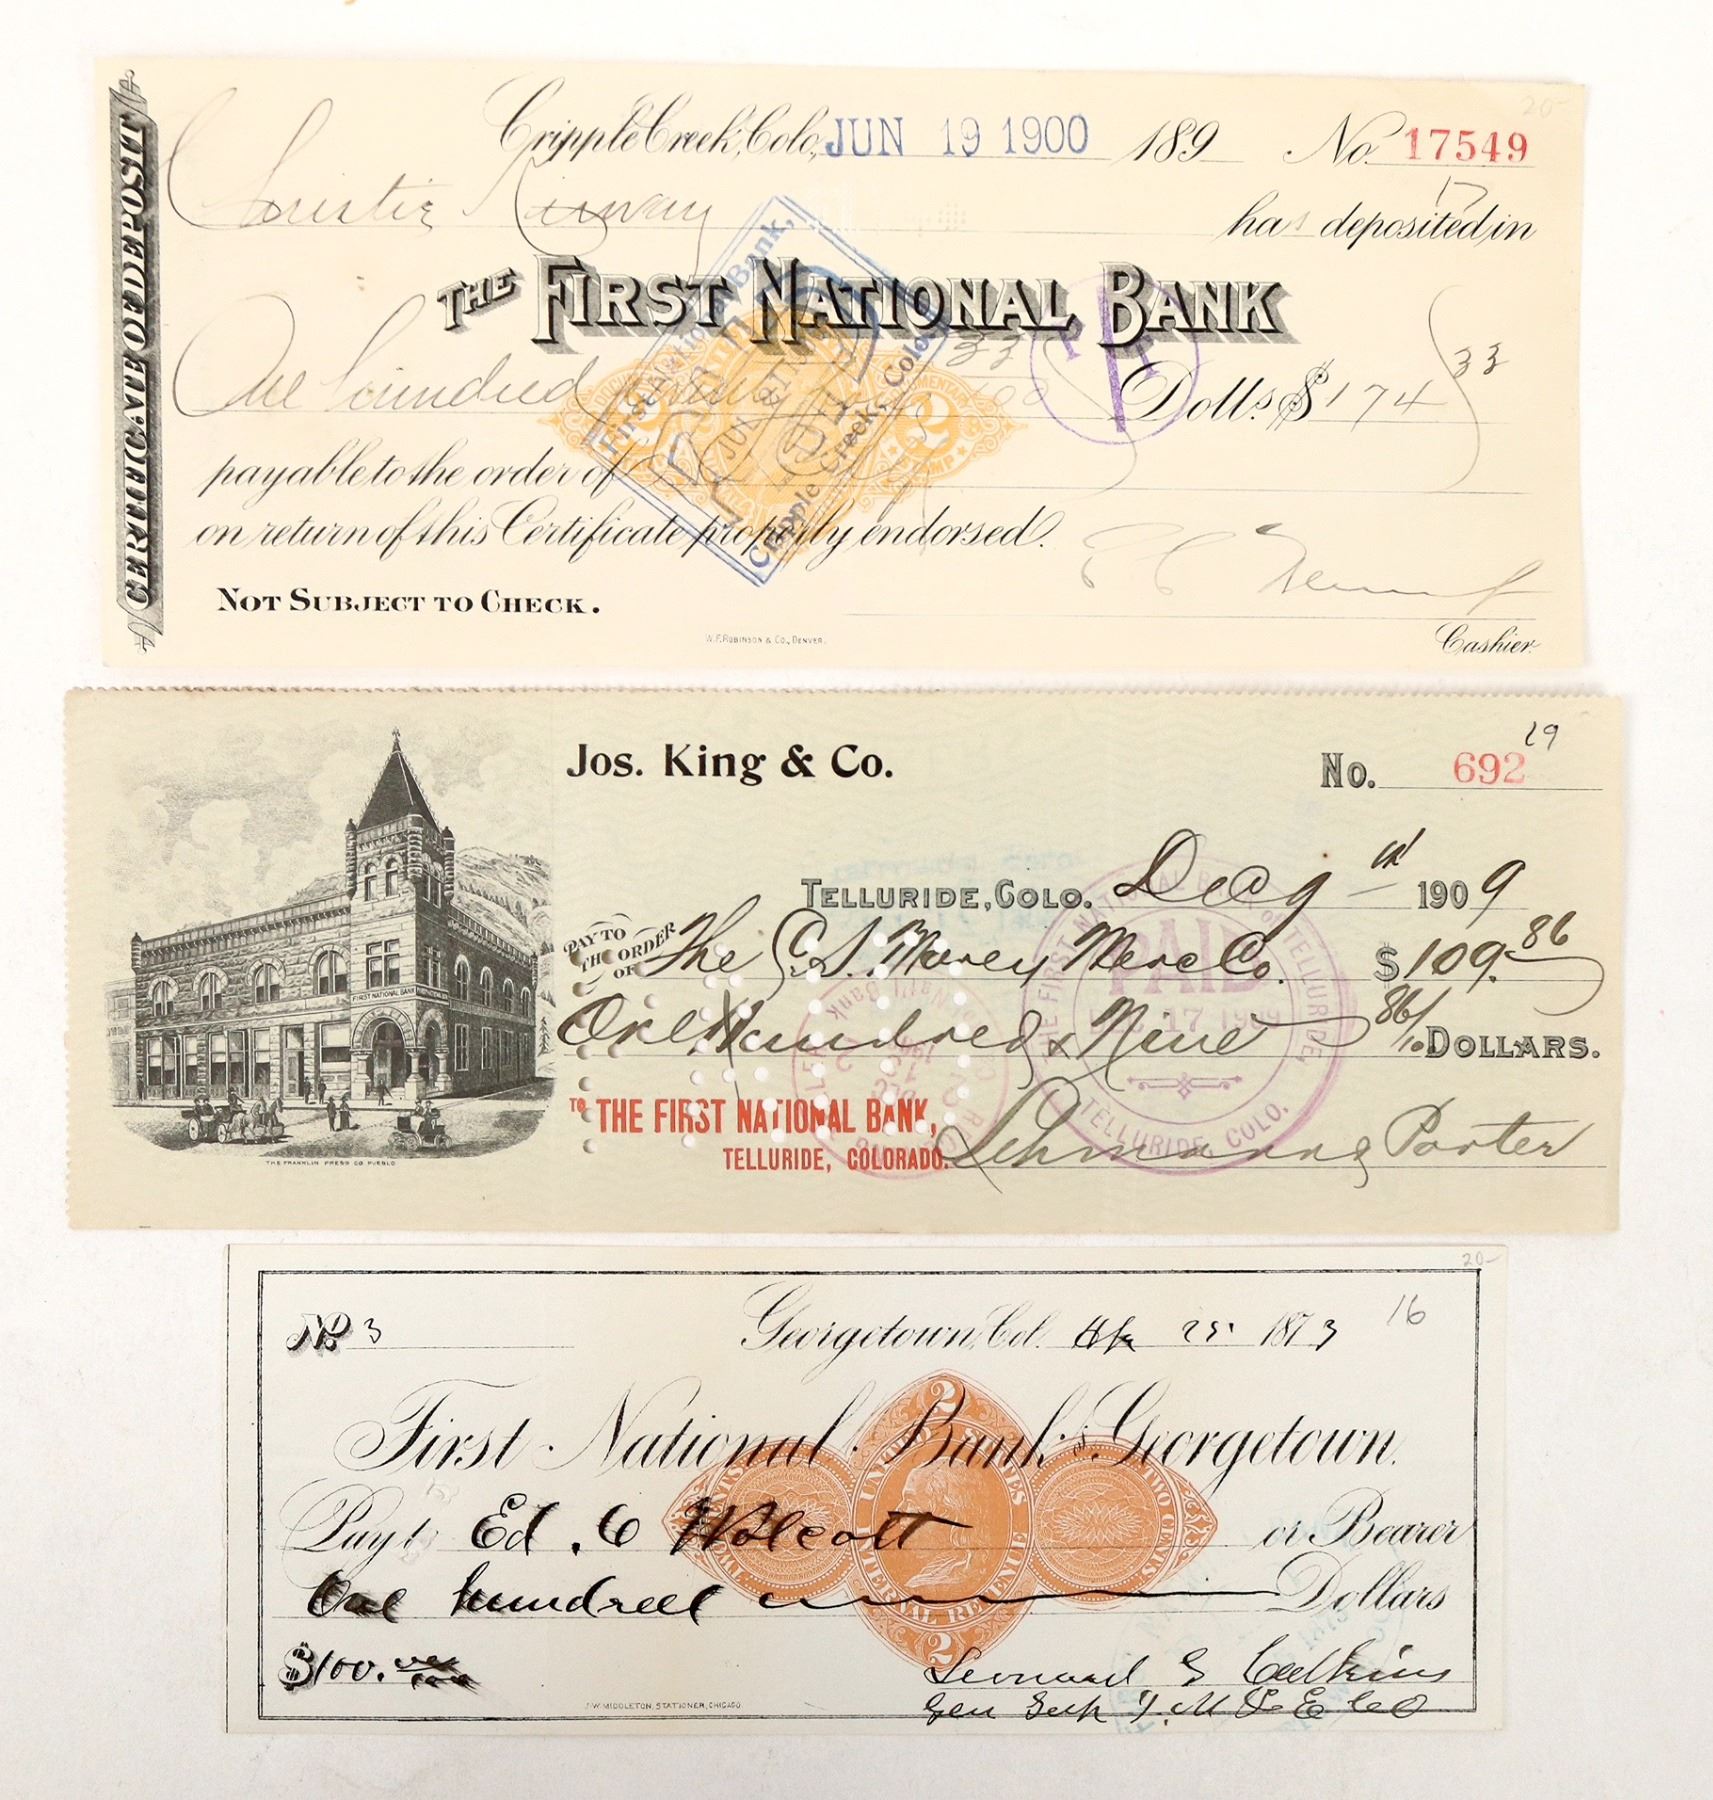 20-
CERTIFICATE OF DEPOSIT
Cripple Creek, Colo, JUN 19 1900 189 No. 17549
17
Christie has deposited in
THE FIRST NATIONAL BANK
One hundred 33/100 Dolls $174 33
payable to the order of
on return of this Certificate properly endorsed.
NOT SUBJECT TO CHECK.
Cashier.
W. F. ROBINSON & CO., DENVER.
First National Bank,
Cripple Creek, Colo.
JUN
2
19
Jos. King & Co. No. 692
TELLURIDE, COLO. Dec 9th 1909
PAY TO THE ORDER OF The C. S. Morey Merc Co. $109.86
One Hundred & Nine 86/10 DOLLARS.
TO THE FIRST NATIONAL BANK,
TELLURIDE, COLORADO.
Porter
FIRST NATIONAL BANK
THE FRANKLIN PRESS CO PUEBLO
THE FIRST NATIONAL BANK OF TELLURIDE,
PAID
17 1909
TELLURIDE, COLO.
20-
16
No 3 Georgetown, Col. 25 1873
First National Bank of Georgetown.
Pay to Ed. O Wolcott or Bearer
One hundred Dollars
$100.
Leonard
Gen Supt
J. W. MIDDLETON, STATIONER, CHICAGO.
2
UNITED STATES
INTERNAL REVENUE
TWO CENTS
TWO CENTS
2